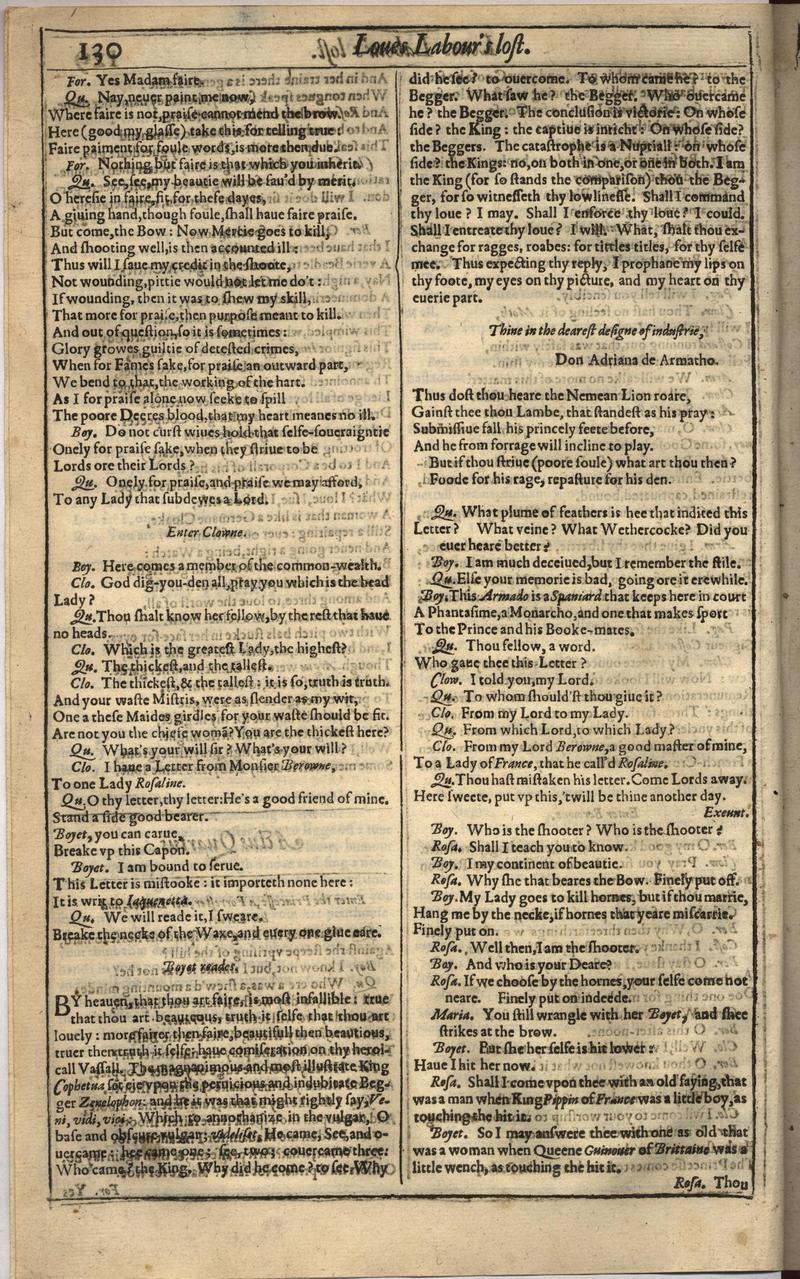 130 Loues Labour's lost.
For. Yes Madam faire.
Qu. Nay, neuer paint me now,
Where faire is not, praise cannot mend the brow.
Here (good my glasse) take this for telling true:
Faire paiment for foule words, is more then due.
For. Nothing but faire is that which you inherit.
Qu. See, see, my beautie will be sau'd by merit.
O heresie in faire, fit for these dayes,
A giuing hand, though foule, shall haue faire praise.
But come, the Bow: Now Mercie goes to kill,
And shooting well, is then accounted ill:
Thus will I saue my credit in the shoote,
Not wounding, pittie would not let me do't:
If wounding, then it was to shew my skill,
That more for praise, then purpose meant to kill.
And out of question, so it is sometimes:
Glory growes guiltie of detested crimes,
When for Fames sake, for praise an outward part,
We bend to that, the working of the hart.
As I for praise alone now seeke to spill
The poore Deeres blood, that my heart meanes no ill.
Boy. Do not curst wiues hold that selfe-soueraigntie
Onely for praise sake, when they striue to be
Lords ore their Lords?
Qu. Onely for praise, and praise we may afford,
To any Lady that subdewes a Lord.
Enter Clowne.
Boy. Here comes a member of the common-wealth.
Clo. God dig-you-den all, pray you which is the head
Lady?
Qu. Thou shalt know her fellow, by the rest that haue
no heads.
Clo. Which is the greatest Lady, the highest?
Qu. The thickest, and the tallest.
Clo. The thickest, & the tallest: it is so, truth is truth.
And your waste Mistris, were as slender as my wit,
One a these Maides girdles for your waste should be fit.
Are not you the chiefe womã? You are the thickest here?
Qu. What's your will sir? What's your will?
Clo. I haue a Letter from Monsier Berowne,
To one Lady Rosaline.
Qu. O thy letter, thy letter: He's a good friend of mine.
Stand a side good bearer.
Boyet, you can carue,
Breake vp this Capon.
Boyet. I am bound to serue.
This Letter is mistooke: it importeth none here:
It is writ to Iaquenetta.
Qu. We will reade it, I sweare.
Breake the necke of the Waxe, and euery one giue eare.
Boyet reades.
BY heauen, that thou art faire, is most infallible: true
that thou art beauteous, truth it selfe that thou art
louely: more fairer then faire, beautifull then beautious,
truer then truth it selfe: haue comiseration on thy heroi-
call Vassall. The magnanimous and most illustrate King
Cophetua set eie vpon the pernicious and indubitate Beg-
ger Zenelophon: and he it was that might rightly say, Ve-
ni, vidi, vici: Which to annothanize in the vulgar, O
base and obscure vulgar; videliset, He came, See, and o-
uercame: hee came one; see, two; couercame three:
Who came? the King. Why did he come? to see. Why
did he see? to ouercome. To whom came he? to the
Begger. What saw he? the Begger. Who ouercame
he? the Begger. The conclusion is victorie: On whose
side? the King: the captiue is inricht: On whose side?
the Beggers. The catastrophe is a Nuptiall: on whose
side? the Kings: no, on both in one, or one in both. I am
the King (for so stands the comparison) thou the Beg-
ger, for so witnesseth thy lowlinesse. Shall I command
thy loue? I may. Shall I enforce thy loue? I could.
Shall I entreate thy loue? I will. What, shalt thou ex-
change for ragges, roabes: for tittles titles, for thy selfe
mee. Thus expecting thy reply, I prophane my lips on
thy foote, my eyes on thy picture, and my heart on thy
euerie part.
Thine in the dearest designe of industrie,
Don Adriana de Armatho.
Thus dost thou heare the Nemean Lion roare,
Gainst thee thou Lambe, that standest as his pray:
Submissiue fall his princely feete before,
And he from forrage will incline to play.
But if thou striue (poore soule) what art thou then?
Foode for his rage, repasture for his den.
Qu. What plume of feathers is hee that indited this
Letter? What veine? What Wethercocke? Did you
euer heare better?
Boy. I am much deceiued, but I remember the stile.
Qu. Else your memorie is bad, going ore it erewhile.
Boy. This Armado is a Spaniard that keeps here in court
A Phantasime, a Monarcho, and one that makes sport
To the Prince and his Booke-mates.
Qu. Thou fellow, a word.
Who gaue thee this Letter?
Clow. I told you, my Lord.
Qu. To whom should'st thou giue it?
Clo. From my Lord to my Lady.
Qu. From which Lord, to which Lady?
Clo. From my Lord Berowne, a good master of mine,
To a Lady of France, that he call'd Rosaline.
Qu. Thou hast mistaken his letter. Come Lords away.
Here sweete, put vp this, 'twill be thine another day.
Exeunt.
Boy. Who is the shooter? Who is the shooter?
Rosa. Shall I teach you to know.
Boy. I my continent of beautie.
Rosa. Why she that beares the Bow. Finely put off.
Boy. My Lady goes to kill hornes, but if thou marrie,
Hang me by the necke, if hornes that yeare miscarrie.
Finely put on.
Rosa. Well then, I am the shooter.
Boy. And who is your Deare?
Rosa. If we choose by the hornes, your selfe come not
neare. Finely put on indeede.
Maria. You still wrangle with her Boyet, and shee
strikes at the brow.
Boyet. But she her selfe is hit lower:
Haue I hit her now.
Rosa. Shall I come vpon thee with an old saying, that
was a man when King Pippin of France was a little boy, as
touching the hit it.
Boyet. So I may answere thee with one as old that
was a woman when Queene Guinouer of Brittaine was a
little wench, as touching the hit it.
Rosa. Thou